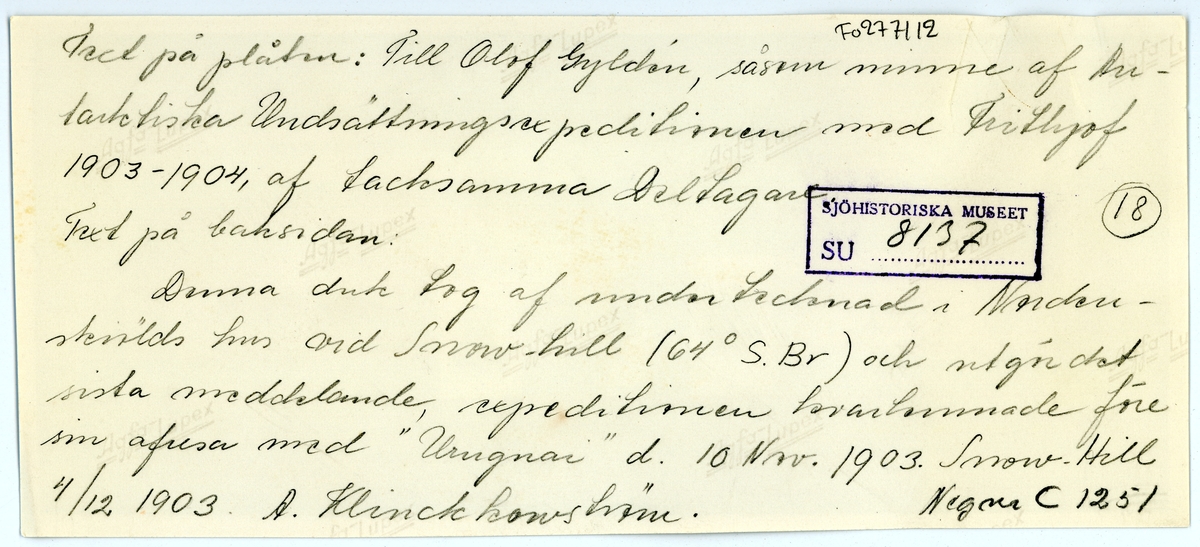 Fo277112
Text på plåten: Till Olof Gyldén, såsom minne af An-
tarktiska Undsättningsexpeditionen med Frithjof
1903-1904, af tacksamma Deltagare
SJÖHISTORISKA MUSEET
SU 8137
18
Text på baksidan:
Denna duk tog af undertecknad i Norden-
skiölds hus vid Snow-hill (64° S. Br) och utgör det
sista meddelande, expeditionen kvarlemnade före
sin afresa med "Uruguai" d. 10 Nov. 1903. Snow-Hill
4/12 1903. A. Klinckhowström.
Neg nr C 1251